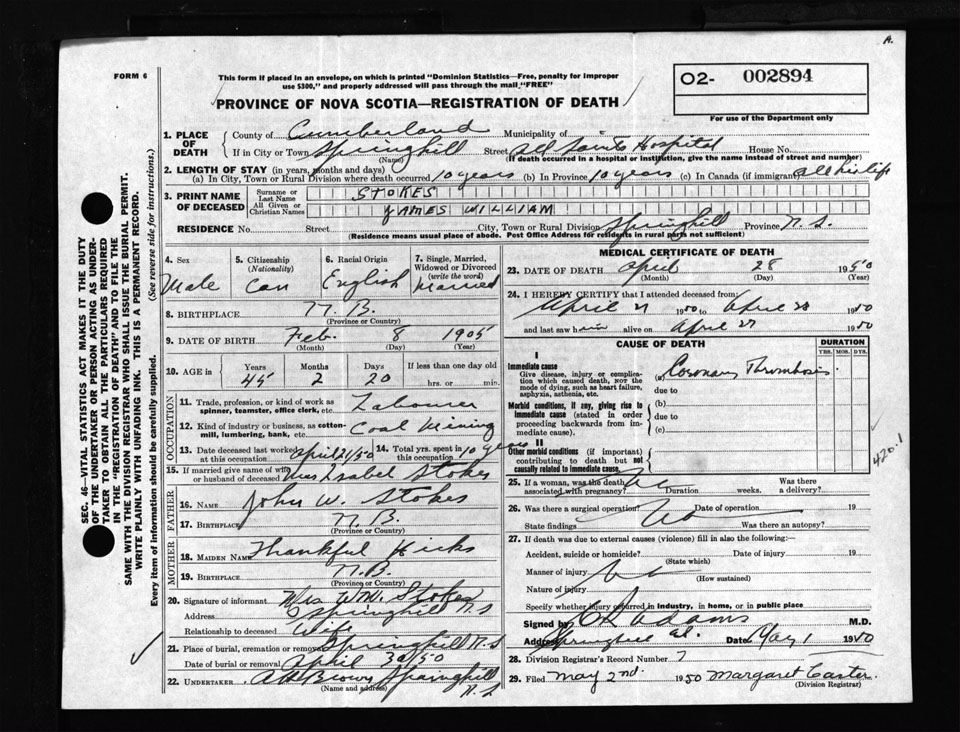 A.
FORM 6
This form if placed in an envelope, on which is printed "Dominion Statistics—Free, penalty for improper
use $300," and properly addressed will pass through the mail "FREE"
PROVINCE OF NOVA SCOTIA—REGISTRATION OF DEATH
02- 002894
For use of the Department only
SEC. 46—VITAL STATISTICS ACT MAKES IT THE DUTY
OF THE UNDERTAKER OR PERSON ACTING AS UNDER-
TAKER TO OBTAIN ALL THE PARTICULARS REQUIRED
IN THE "REGISTRATION OF DEATH" AND TO FILE THE
SAME WITH THE DIVISION REGISTRAR WHO SHALL ISSUE THE BURIAL PERMIT.
WRITE PLAINLY WITH UNFADING INK. THIS IS A PERMANENT RECORD.
Every item of Information should be carefully supplied. (See reverse side for instructions.)
1. PLACE OF DEATH County of Cumberland Municipality of
If in City or Town Springhill Street All Saints Hospital House No.
(Name) (If death occurred in a hospital or institution, give the name instead of street and number)
2. LENGTH OF STAY (in years, months and days)
(a) In City, Town or Rural Division where death occurred 10 years (b) In Province 10 years (c) In Canada (if immigrant) all his life
3. PRINT NAME OF DECEASED Surname or Last Name STOKES
All Given or Christian Names JAMES WILLIAM
RESIDENCE No. Street City, Town or Rural Division Springhill Province N.S.
(Residence means usual place of abode. Post Office Address for residents in rural parts not sufficient)
4. Sex Male
5. Citizenship (Nationality) Can
6. Racial Origin English
7. Single, Married, Widowed or Divorced (write the word) Married
8. BIRTHPLACE N.B.
(Province or Country)
9. DATE OF BIRTH Feb. 8 1905
(Month) (Day) (Year)
10. AGE in Years 45 Months 2 Days 20 If less than one day old hrs. or min.
OCCUPATION
11. Trade, profession, or kind of work as spinner, teamster, office clerk, etc. Labourer
12. Kind of industry or business, as cotton-mill, lumbering, bank, etc. Coal Mining
13. Date deceased last worked at this occupation April 21/50 14. Total yrs. spent in this occupation 10 years
15. If married give name of wife or husband of deceased Mrs Isabel Stokes
FATHER
16. NAME John W. Stokes
17. BIRTHPLACE N.B.
(Province or Country)
MOTHER
18. MAIDEN NAME Thankful Hicks
19. BIRTHPLACE N.B.
(Province or Country)
20. Signature of informant Mrs W.W. Stokes
Address Springhill N.S
Relationship to deceased Wife
21. Place of burial, cremation or removal Springhill N.S
Date of burial or removal April 30/50
22. UNDERTAKER A H Brown Springhill N.S
(Name and address)
MEDICAL CERTIFICATE OF DEATH
23. DATE OF DEATH April 28 1950
(Month) (Day) (Year)
24. I HEREBY CERTIFY that I attended deceased from
April 21 1950 to April 28 1950
and last saw him alive on April 27 1950
CAUSE OF DEATH
DURATION
YRS. MOS. DYS.
I
Immediate cause
Give disease, injury or complication which caused death, NOT the mode of dying, such as heart failure, asphyxia, asthenia, etc.
(a) Coronary Thrombosis
due to
Morbid conditions, if any, giving rise to immediate cause (stated in order proceeding backwards from immediate cause).
(b)
due to
(c)
II
Other morbid conditions (if important) contributing to death but not causally related to immediate cause
420
25. If a woman, was the death associated with pregnancy? Duration weeks. Was there a delivery?
26. Was there a surgical operation? No Date of operation 19
State findings Was there an autopsy?
27. If death was due to external causes (violence) fill in also the following:—
Accident, suicide or homicide? Date of injury 19
(State which)
Manner of injury
(How sustained)
Nature of injury
Specify whether injury occurred in industry, in home, or in public place
Signed by Adams M.D.
Address Springhill Date May 1 1950
28. Division Registrar's Record Number 7
29. Filed May 2nd 1950 Margaret Carter
(Division Registrar)